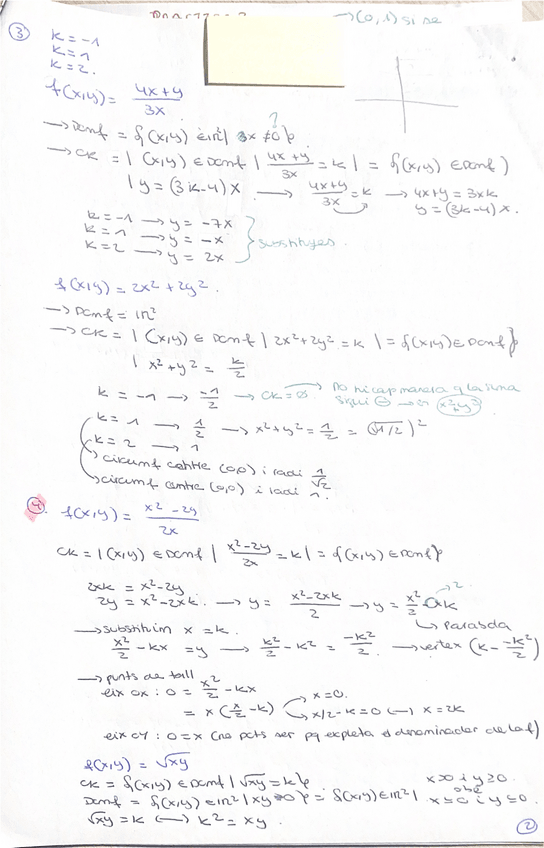 →(0,1) si se
③ k=-1
k=1
k=2.
f(x,y) = 4x+y / 3x
?
→ Domf = {(x,y) ∈ ℝ² | 3x ≠ 0}
→ CK = | (x,y) ∈ Domf | 4x+y / 3x = k | = {(x,y) ∈ Domf)
| y = (3k-4)x → 4x+y / 3x = k → 4x+y = 3xk
y = (3k-4)x.
k=-1 → y = -7x
k=1 → y = -x
k=2 → y = 2x
substitujes.
f(x,y) = 2x² + 2y².
→ Domf = ℝ²
→ CK = | (x,y) ∈ Domf | 2x²+2y² = k | = {(x,y) ∈ Domf}
| x²+y² = k/2
k=-1 → -1/2 → CK=∅ → no hi cap manera q la suma
sigui ⊖ → x²+y²
k=1 → 1/2 → x²+y² = 1/2 = (√1/2)²
k=2 → 1
circumf centre (0,0) i radi 1/√2
circumf centre (0,0) i radi 1.
④ f(x,y) = x²-2y / 2x
CK = | (x,y) ∈ Domf | x²-2y / 2x = k | = {(x,y) ∈ Domf}
2xk = x²-2y
2y = x²-2xk. → y = x²-2xk / 2 → y = x²/2 - k
Parabola
→ substituim x = k.
x²/2 - kx = y → k²/2 - k² = -k²/2 → vertex (k, -k²/2)
→ punts de tall
eix OX : 0 = x²/2 - kx
= x (x/2 - k) x=0.
x/2-k=0 ↔ x=2k
eix OY : 0=x (no pots ser pq expleta el denominador de la f)
f(x,y) = √xy
CK = {(x,y) ∈ Domf | √xy = k}
Domf = {(x,y) ∈ ℝ² | xy ≥ 0} = {(x,y) ∈ ℝ² | x≥0 i y≥0.
obé
x≤0 i y≤0.
√xy = k ↔ k² = xy.
②